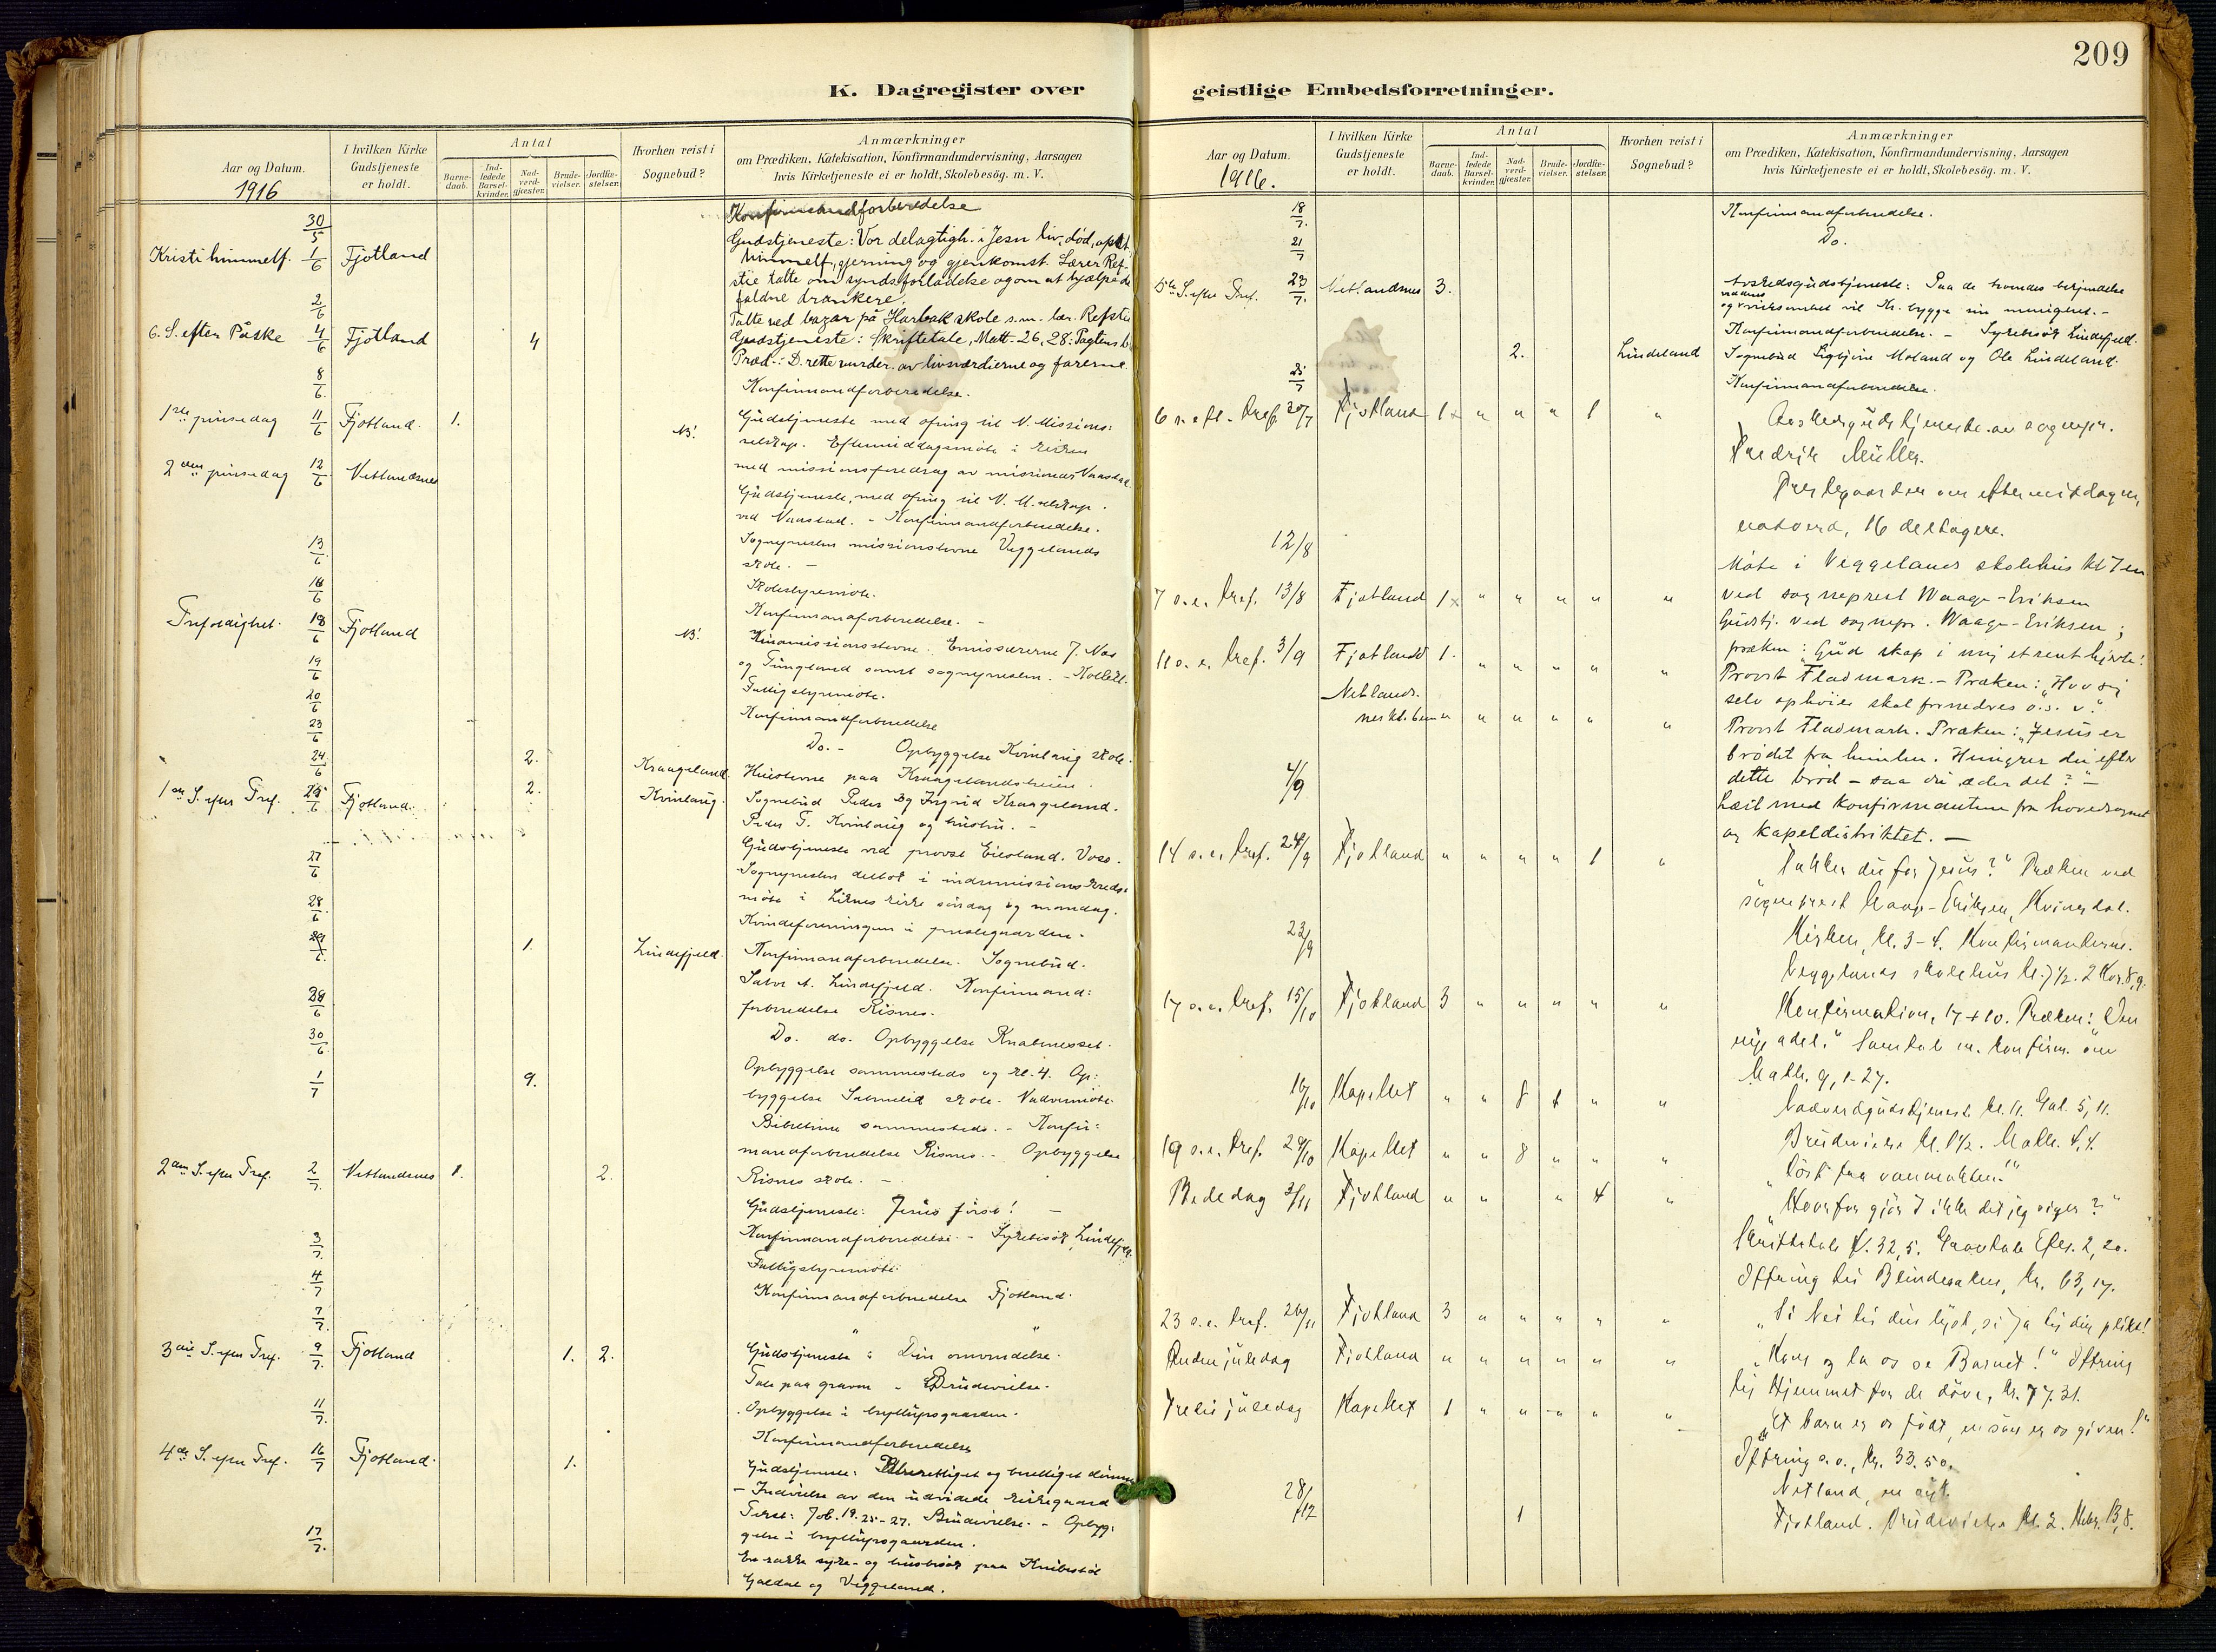 K. Dagregister over
Aar og Datum.
1916
I hvilken Kirke Gudstjeneste er holdt.
Antal
Barne-daab.
Ind-ledede Barsel-kvinder.
Nad-verd-gjester.
Brude-vielser.
Jordfæ-stelser.
Hvorhen reist i Sognebud?
Anmærkninger
om Prædiken, Katekisation, Konfirmandundervisning, Aarsagen
hvis Kirketjeneste ei er holdt, Skolebesög. m. V.
30/5 Konfirmandforberedelse
Kristi himmelf. 1/6 Fjotland Gudstjeneste: Vor delagtigh. i Jesu liv, död, opst.
himmelf., gjerning og gjenkomst. Lærer Ref-
stie talte om synds forladelse og om at hjælpe de
faldne drankere.
2/6 Talte ved bazar på Harbak skole s.m. lær. Refstie
6. S. efter Påske 4/6 Fjotland 4 Gudstjeneste: Skriftetale, Matt. 26, 28: Pagtens b.
Præd.: D. rette vurder. av livsværdierne og farerne.
8/6 Konfirmandforberedelse.
1ste pinsedag 11/6 Fjotland. 1. Gudstjeneste med ofring til N. Missions:
selskap. Eftermiddagsmöte i kirken
med missionsforedrag av missionær
2den pinsedag 12/6 Netlandsnes Gudstjeneste, med ofring til N. M.selskap.
Konfirmandforberedelse.
13/6 Sognepresten missionstevne Veggelands
skole. -
16/6 Skolestyremöte.
Konfirmandforberedelse. -
Trefoldighet. 18/6 Fjotland Emissærerne J. Nas
og Tungland samt sognepresten. - Kollekt.
19/6 Fattigstyremöte.
20/6 Konfirmandforberedelse
23/6 Do. - Opbyggelse Kvinlaug skole.
24/6 2. Kraageland. paa Kraagelandsheien.
1ste S. efter Tref. 25/6 Fjotland. 2. Kvinlaug. Sognebud Peder og Ingrid Kraageland.
Peder T. Kvinlaug og hustru. -
Gudstjeneste ved provst Eiesland. Voss.
27/6 Sognepresten deltok i indremissions kreds-
möte i Liknes kirke söndag og mandag.
28/6 Kvindeforeningen i prestegaarden.
29/6 1. Lindefjeld. Konfirmandforberedelse. Sognebud.
Lindefjeld. Konfirmand:
forberedelse Risnes.
30/6 Do. do. Opbyggelse Knabenesset.
1/7 9. Opbyggelse sammesteds og kl. 4. Op:
byggelse skole. Nadvermöte
sammesteds. - Konfir:
mandforberedelse Risnes. - Opbyggelse
Risnes skole. -
2den S. efter Tref. 2/7 Netlandsnes 1. 2. Gudstjeneste: Jesus först! -
3/7 Konfirmandforberedelse. - Sykebesök Lindefjeld.
4/7 Fattigstyremöte.
7/7 Konfirmandforberedelse Fjotland.
3die S. efter Tref. 9/7 Fjotland 1. 2. Gudstjeneste: Din omvendelse.
Tale paa graven. Brudevielse.
Opbyggelse i bryllupsgaarden.
11/7 Konfirmandforberedelse
4de S. efter Tref. 16/7 Fjotland. 1. Gudstjeneste: Uberettiget og berettiget dömme
- Indvielse av den utvidede kirkegaard
Tekst: Job. 19. 25-27. Brudevielse. - Opbyg:
gelse i bryllupsgaarden.
17/7 En række syke- og husbesök paa Knibestöl
Galdal og Veggeland.
209
geistlige Embedsforretninger.
Aar og Datum.
1916.
I hvilken Kirke Gudstjeneste er holdt.
Antal
Barne-daab.
Ind-ledede Barsel-kvinder.
Nad-verd-gjester.
Brude-vielser.
Jordfæ-stelser.
Hvorhen reist i Sognebud?
Anmærkninger
om Prædiken, Katekisation, Konfirmandundervisning, Aarsagen
hvis Kirketjeneste ei er holdt, Skolebesög. m. V.
18/7 Konfirmandforberedelse.
21/7 Do.
5te S. efter Tref. 23/7 Netlandsnes 3. Avskedsgudstjeneste: Paa de troendes bekjendelse
og virksomhet vil Kr. bygge sin menighet. -
Konfirmandforberedelse. - Sykebesök Lindefjeld.
2. Lindeland Sognebud Sigbjörn Moland og Ole Lindeland.
25/7 Konfirmandforberedelse.
6 s. eft. Tref. 30/7 Fjotland 1 " " " 1 " Avskedsgudstjeneste av sognepr.
Fredrik Müller.
Prestegaarden om eftermiddagen,
natverd, 16 deltagere.
12/8 Möte i Veggelands skolehus kl 7 em
ved sogneprest Waage-Eriksen
7 s.e. Tref. 13/8 Fjotland 1 " " " " " Gudstj. ved sognepr. Waage-Eriksen;
præken: Gud skap i mig et rent hjerte!
11 s.e. Tref. 3/9 Fjotland 1. " " " " " Provst Fladmark. - Præken: "Hvo sig
selv ophöier skal fornedres o.s.v."
Netlands-
nes kl. 6 em " " " " " " Provst Fladmark. Præken: "Jesus er
brödet fra himlen. Hungrer du efter
dette bröd - saa du æder det?" -
4/9 Læst med konfirmanterne fra hovedsognet
og kapeldistriktet. -
14 s.e. Tref. 24/9 Fjotland " " " " 1 " "Takker du for Jesus?" Præken ved
sogneprest Waage-Eriksen, Kvinesdal.
23/9 Kirken, kl. 3-4. Konfirmanterne.
Veggelands skolehus kl. 7½. 2 Kor. 8,9.
17 s.e. Tref. 15/10 Fjotland 3 " " " " " Konfirmation, 17+10. Præken: "Den
nye adel." Samtale m. konfirm. om
Matth. 9, 1-27.
16/10 Kapellet " " 8 1 " " Nadverdgudstjeneste kl. 11. Gal. 5, 11.
Brudevielse kl. 1½. Matth. 4,4.
19 s.e. Tref. 29/10 Kapellet " " 8 " " "
Bededag 3/11 Fjotland " " " 4 " "Hvorfor gjör I ikke det jeg siger?"
Skriftetale 32, 5. Gravtale Efes. 2, 20.
Offring til Blindesaken, kr. 63,17.
23 s.e. Tref. 26/11 Fjotland 3 " " " " " "Si Nei til din lyst, si Ja til din plikt!"
Anden juledag Fjotland " " " " " " "Kom og la os se Barnet!" Offring
til Hjemmet for de döve, kr. 77.31.
Tredie juledag Kapellet 1 " " " " " "Et barn er os födt, en sön er os given!"
Offring s.s., kr. 33.50.
28/12 1 Fjotland. Brudevielse kl. 2. Hebr. 13,8.